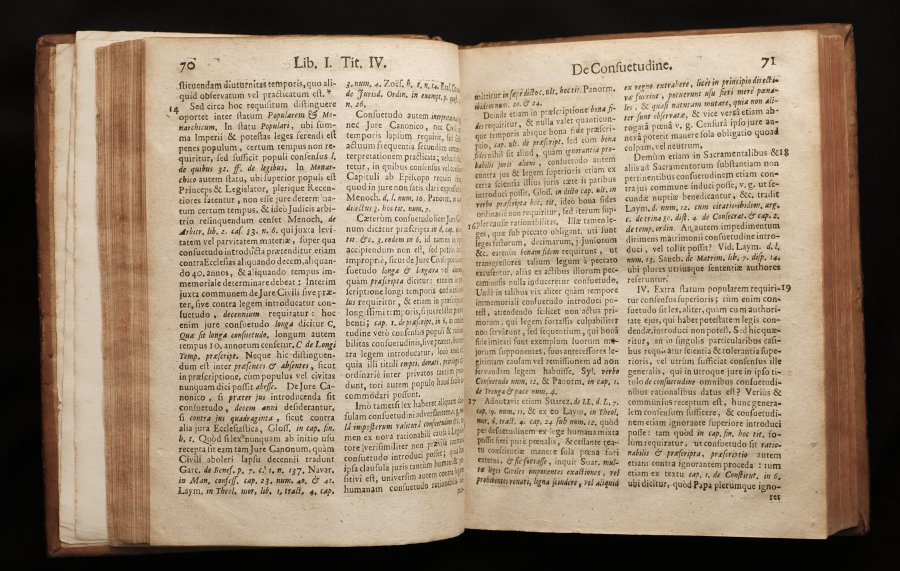 70
Lib. I. Tit. IV.
stituendam diuturnitas temporis, quo ali-
quid observatum vel practicatum est.
14 Sed circa hoc requisitum distinguere
oportet inter statum Popularem & Mo-
narchicum. In statu Populari, ubi sum-
ma Imperii & potestas leges serendi est
penes populum, certum tempus non re-
quiritur, sed sufficit populi consensus l.
de quibus 32. ff. de legibus. In Monar-
chico autem statu, ubi superior populi est
Princeps & Legislator, plerique Recen-
tiores fatentur, non esse jure determina-
tum certum tempus, & ideò Judicis arbi-
trio relinquendum censet Menoch. de
Arbitr. lib. 2. cas. 83. n. 6. qui juxta levi-
tatem vel parvitatem materiæ, super qua
consuetudo introducta prætenditur etiam
contra Ecclesias aliquando decem, aliquan-
do 40. annos, & aliquando tempus im-
memoriale determinare debeat: Interim
juxta communem de Jure Civili sive præ-
ter, sive contra legem introducatur con-
suetudo, decennium requiratur: hoc
enim jure consuetudo longa dicitur C.
Quæ sit longa consuetudo, longum autem
tempus 10. annorum censetur, C. de Longi
Temp. præscript. Neque hìc distinguen-
dum est inter præsentes & absentes, sicut
in præscriptione, cùm populus vel civitas
nunquam dici possit abesse. De Jure Ca-
nonico, si præter jus introducenda sit
consuetudo, decem anni desiderantur,
si contra jus quadraginta, sicut contra
alia jura Ecclesiastica, Gloss. in cap. fin.
h. t. Quòd si lex nunquam ab initio usu
recepta sit eam tàm Jure Canonum, quàm
Civili aboleri lapsu decennii tradunt
Garc. de Benef. p. 7. c. 1. n. 137. Navar.
in Man. confess. cap. 23. num. 40. & 41.
Laym. in Theol. mor. lib. 1. tract. 4. cap.
3. num. 4. Zoës. h. t. n. 14.
de Jurisd. Ordin. in exempt. p.
n. 26.
Consuetudo autem
nec Jure Canonico, nec Civili
temporis lapsum requirit, sed
actuum frequentia secundùm
terpretationem practicata; velut
tetur, in quibus consensus vel
Capituli ab Episcopo requiri
quod in jure non satis clarè expressum
Menoch. d. l. num. 10. Panorm. in
dilectus 8. hoc tit. num. 7.
Cæterùm consuetudo licet Jure
num dicatur præscripta in d. cap. ult.
tit. &c. 3. eodem in 6. id tamen
accipiendum non est, sed potiùs
impropriè, sicut de Jure Civili
suetudo longa & longæva vel
quàm præscripta dicitur: etenim
scriptione longi temporis ordinariè
lus requiritur, & etiam in præscriptione
longissimi temporis, si jus resistat præscri-
benti; cap. 1. de præscript. in 6. in consue-
tudine verò consensus populi &
bilitas consuetudinis, sive præter, sive con-
tra legem introducatur, loco
quia illi tituli empti, donati,
ordinariè inter privatos tantùm proce-
dunt, toti autem populo haud facilè
commodari possunt.
Imò tametsi lex haberet aliquem
sulam consuetudini adversantem,
lâ imposterum valiturâ consuetudine &c.
men ex nova rationabili causa
tore verisimiliter non prævisa
consuetudo introduci posset; quia
ipsa clausula juris tantùm humani &
sitivi est, universim autem contra legem
humanam consuetudo rationabilis
De Consuetudine.
71
mittitur in sæpè dict. c. ult. hoc tit. Panorm.
ibidem num. 20. & 24.
Deinde etiam in præscriptione bona fi-
des requiritur, & nulla valet quanticun-
que temporis absque bona fide præscri-
ptio, cap. ult. de præscript. sed cùm bona
fides nihil sit aliud, quàm ignorantia pro-
babilis juris alieni, consuetudo autem
contra jus & legem superioris etiam ex
certa scientia illius juris cæteris paribus
introduci possit, Gloss. in dicto cap. ult. in
verbo præscripta hoc. tit. ideò bona fides
ordinariè non requiritur, sed iterum sup-
16 plet causæ rationabilitas. Illæ tamen le-
ges, quæ sub peccato obligant, uti sunt
leges festorum, decimarum, jejuniorum
&c. earenus bonam fidem requirunt, ut
transgressores talium legum à peccato
excusentur, aliàs ex actibus illorum pec-
caminosis nulla induceretur consuetudo.
Unde in talibus vix aliter quàm tempore
immemoriali consuetudo introduci po-
test, attendendo scilicet non actus pri-
morum, qui legem fortassis culpabiliter
non servârunt, sed sequentium, qui bonâ
fide imitati sunt exemplum suorum ma-
jorum supponentes, suos antecessores le-
gitimam causam vel remissionem ad non
servandum legem habuisse, Syl. verbo
Consuetudo num. 12. & Panorm. in cap. 1.
de Treuga & pace num. 4.
17 Adnotavit etiam Suarez. de LL. d. l. 7.
cap. 19. num. 11. & ex eo Laym. in Theol.
mor. d. tract. 4. cap. 24 sub num. 12. quòd
per desuetudinem ex lege humana mixta
possit fieri purè pœnalis, & cessante rea-
tu conscientiæ manere sola pœna fori
externi, & sic fortasse, inquit Suar. mul-
ta leges Civiles imponentes exactiones, vel
prohibentes venari, ligna scindere, vel aliquid
ex regno extrahere, licèt in principio directi-
væ fuerint, potuerunt usu fieri merè pœna-
les, & quasi naturam mutare, quia non ali-
ter sunt observatæ, & vice versâ etiam ab-
rogatâ pœnâ v. g. Censurâ ipso jure an-
nexâ potest manere sola obligatio quoad
culpam, vel neutrum.
Demùm etiam in Sacramentalibus & 18
aliis ad Sacramentorum substantiam non
pertinentibus consuetudinem etiam con-
tra jus commune induci posse, v. g. ut se-
cundæ nuptiæ benedicantur, &c. tradit
Laym. d. num. 12. cum citatis ibidem, arg.
c. de trina 80. dist. 4. de Consecrat. & cap. 2.
de temp. ordin. An autem impedimentum
dirimens matrimonii consuetudine intro-
duci, vel tollit possit? Vid. Laym. d. l.
num. 13. Sanch. de Matrim. lib. 7. disp. 14.
ubi plures utriusque sententiæ authores
referuntur.
IV. Extra statum popularem requiri- 19
tur consensus superioris; cùm enim con-
suetudo sit lex, aliter, quàm cum authori-
tate ejus, qui habet potestatem legis con-
dendæ, introduci non potest. Sed hic quæ-
ritur, an in singulis particularibus casi-
bus requiratur scientia & tolerantia supe-
rioris, vel utrùm sufficiat consensus ille
generalis, qui in utroque jure in ipso ti-
tulo de consuetudine omnibus consuetudi-
nibus rationalibus datus est? Verius &
communius receptum est, hunc genera-
lem consensum sufficere, & consuetudi-
nem etiam ignorante superiore introduci
posse: tàm quòd in cap. fin. hoc tit. so-
lùm requiratur, ut consuetudo sit ratio-
nabilis & præscripta, præscriptio autem
etiam contra ignorantem proceda: tùm
etiam ex textu cap. 1. de Constitut. in 6.
ubi dicitur, quòd Papa plerumque igno-
ret